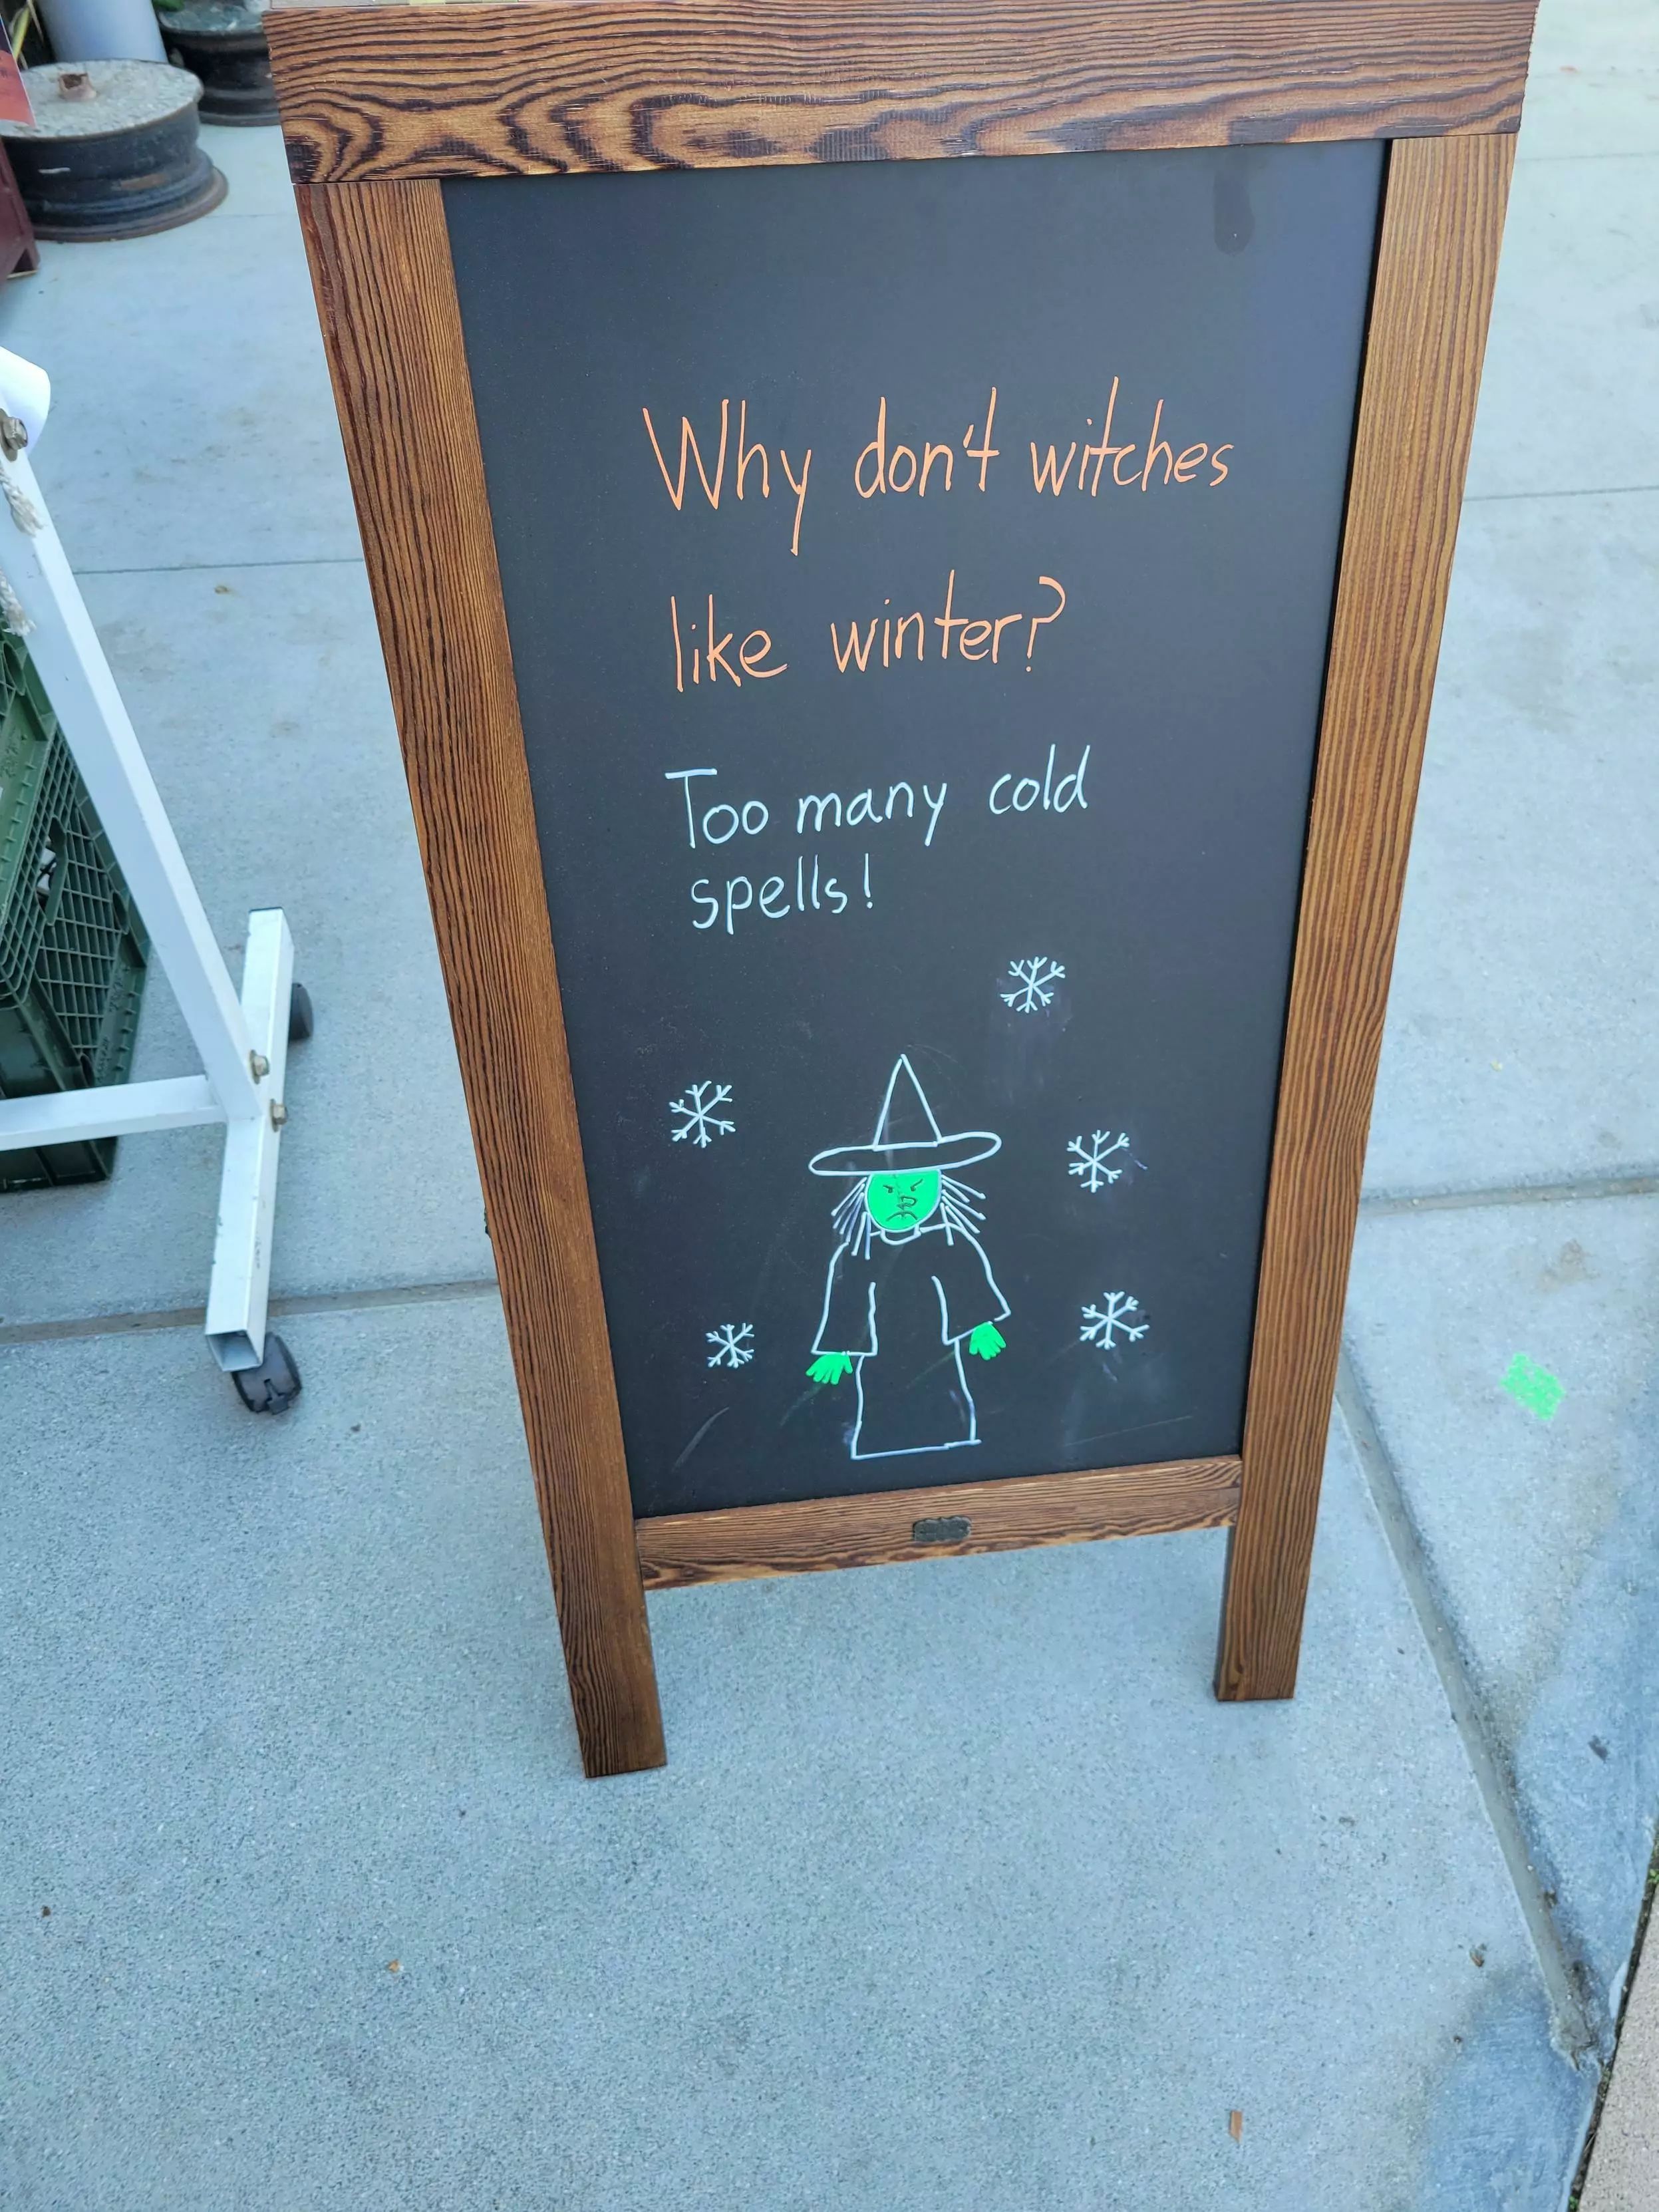 Why don't witches
like winter?
Too many cold
spells!